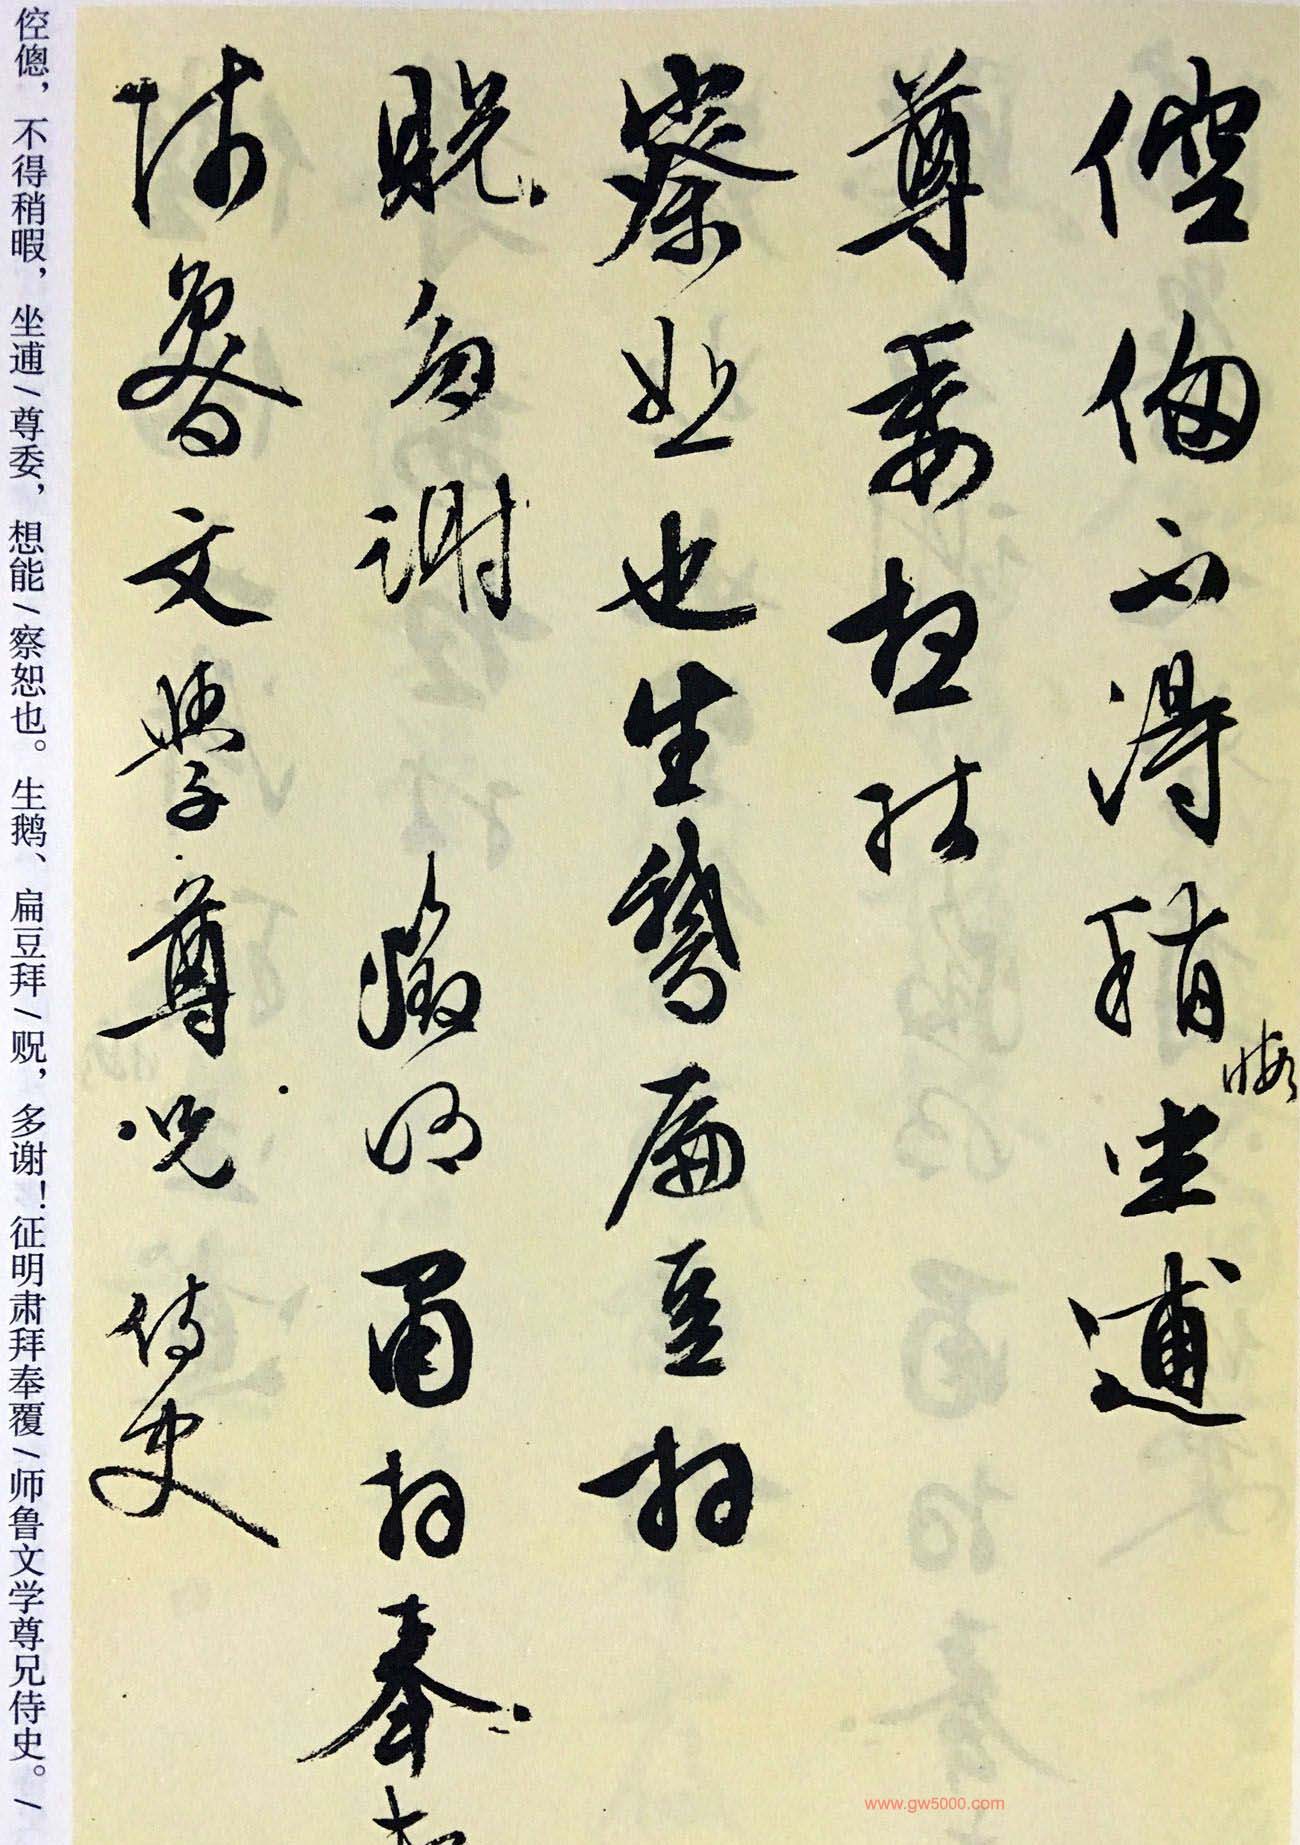 倥偬不得稍暇坐逋
尊委想能
察恕也生鹅扁豆拜
贶多谢徵明肃拜奉
师鲁文学尊兄侍史
倥傯，不得稍暇，坐逋/尊委，想能/察恕也。生鹅、扁豆拜/贶，多谢！征明肃拜奉覆/师鲁文学尊兄侍史。/
www.gw5000.com